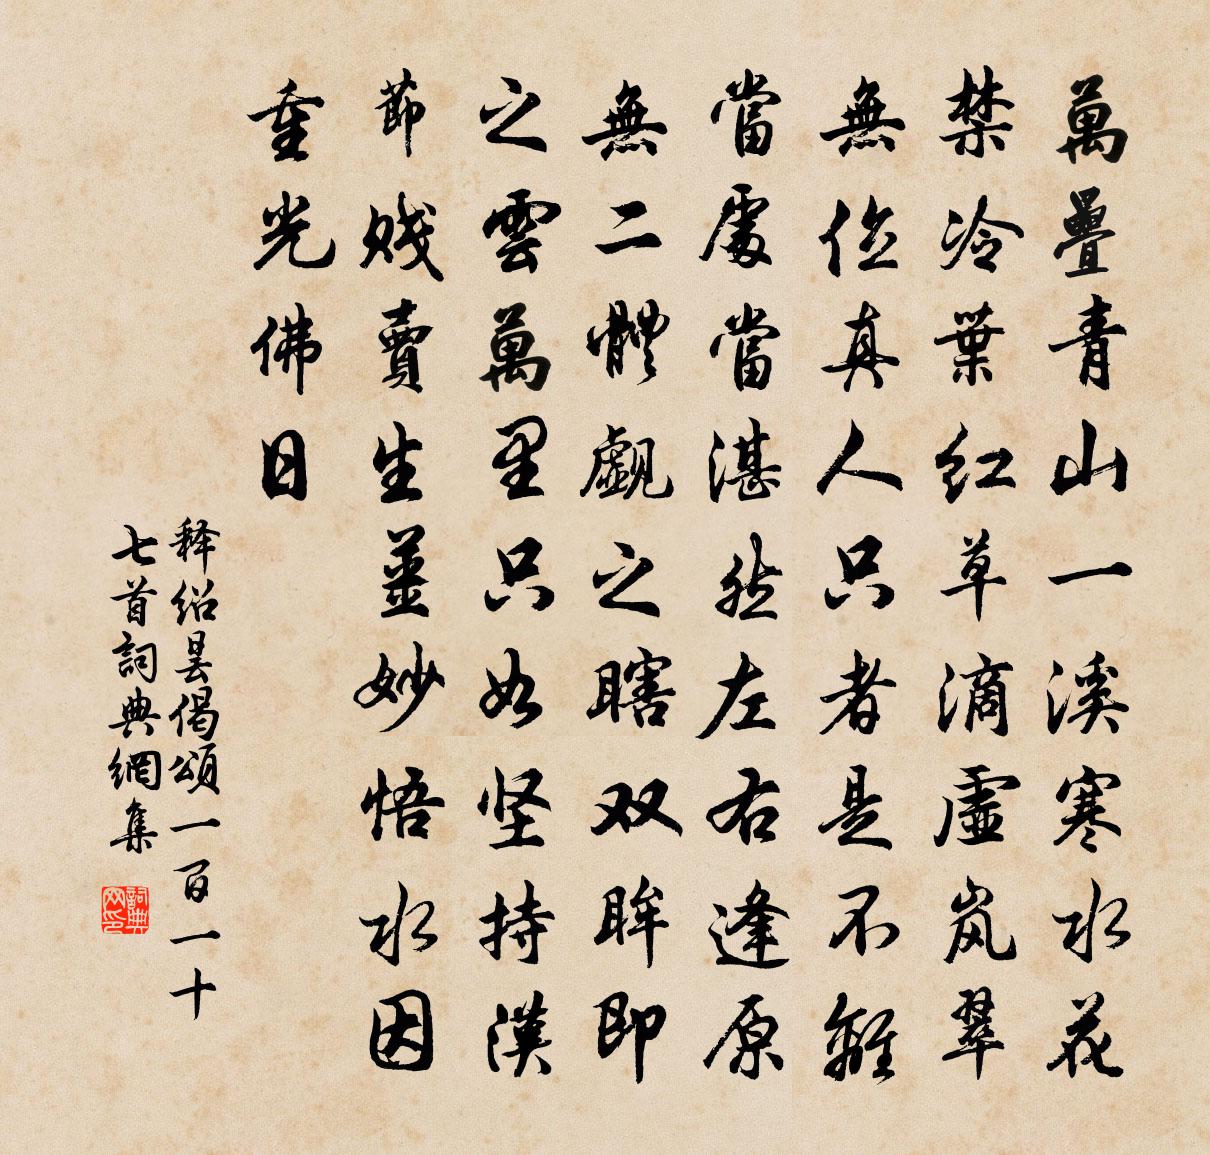 萬疊青山一溪寒水花
禁冷葉红草滴虛岚翠
無位真人只者是不離
當處當湛然左右逢原
無二體覷之瞎双眸即
之雲萬里只如坚持漢
節贱賣生薑妙悟水因
重光佛日
释绍昙偈頌一百一十
七首詞典網集
詞典网印